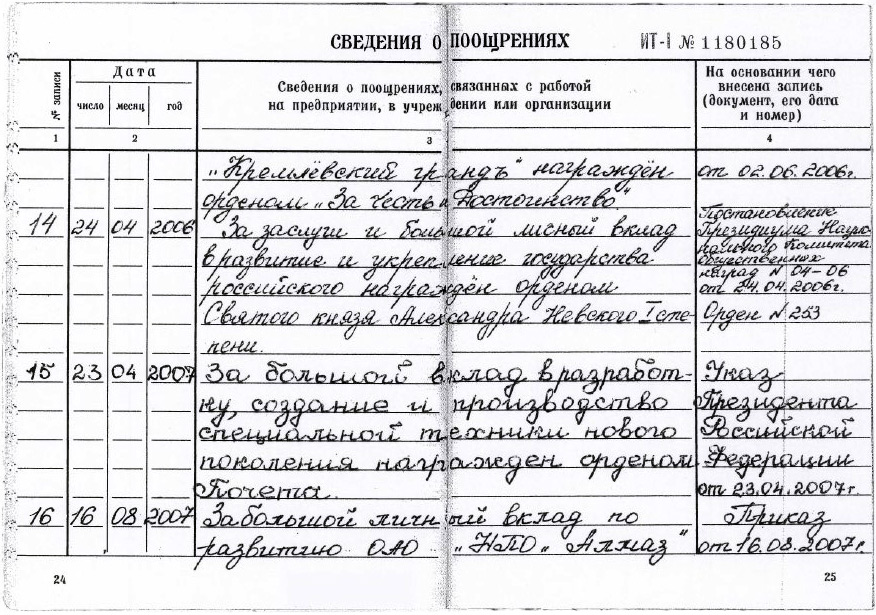 СВЕДЕНИЯ О ПООЩРЕНИЯХ ИТ-I № 1180185
№ записи
Дата
число месяц год
Сведения о поощрениях, связанных с работой
на предприятии, в учреждении или организации
На основании чего
внесена запись
(документ, его дата
и номер)
1 2 3 4
„Кремлёвский грандъ" награждён от 02.06.2006г.
орденом „За Честь и Достоинство"
14 24 04 2006 За заслуги и большой личный вклад
в развитие и укрепление государства
российского награждён орденом
Святого князя Александра Невского I сте-
пени.
Постановление
Президиума Нацио
нального Комитета
общественных
наград N 04-06
от 24.04.2006г.
Орден N 253
15 23 04 2007 За большой вклад в разработ-
ку, создание и производство
специальной техники нового
поколения награжден орденом
Почета.
Указ
Президента
Российской
Федерации
от 23.04.2007г.
16 16 08 2007 За большой личный вклад по Приказ
развитию ОАО „НПО „Алмаз" от 16.08.2007г.
24 25